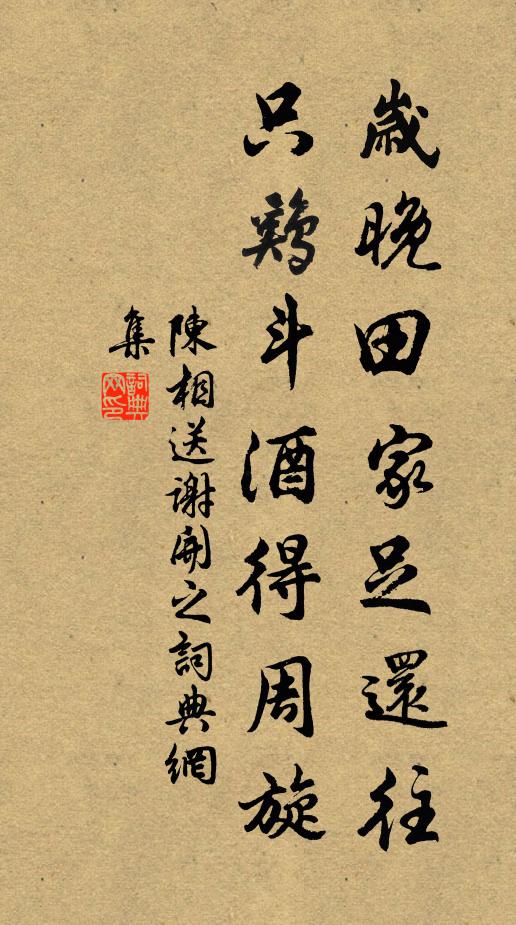 歲晚田家足還往
只鷄斗酒得周旋
陳相送謝開之詞典網
集
詞典
网印